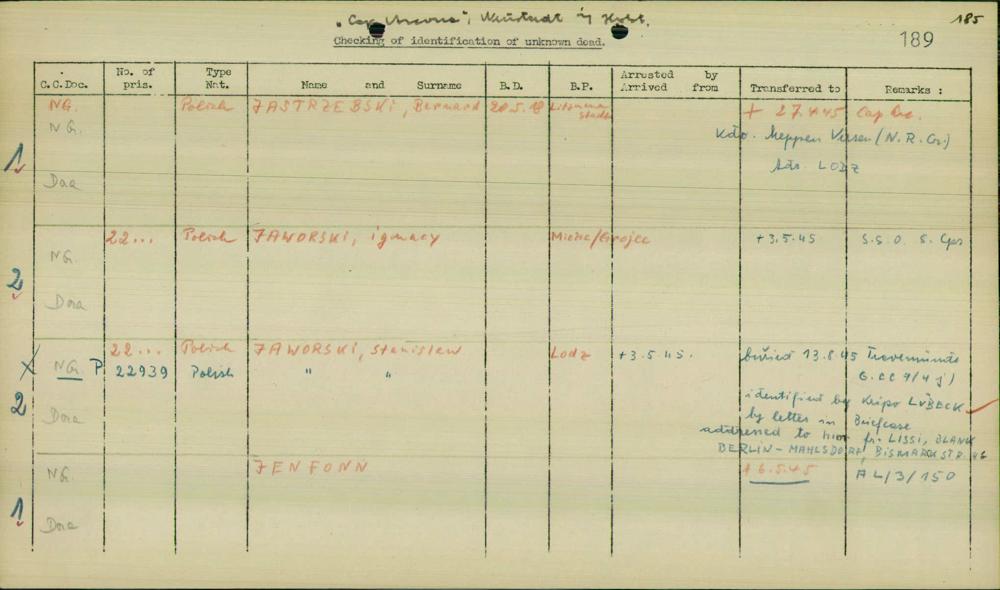 "Cap Arcona", Neustadt i/ Holst.
185
Checking of identification of unknown dead.
189
C.C.Doc. No. of pris. Type Nat. Name and Surname B.D. B.P. Arrested by Arrived from Transferred to Remarks :
NG. Polish JASTRZEBSKI, Bernard 20.5.18 Litzmannstadt + 27.4.45 Cap Arc.
NG. Kdo. Meppen Versen (N.R. Gr.)
1 Adr. LODZ
Daa
22... Polish JAWORSKI, Ignacy +3.5.45 S.S.O. S.
NG.
2
Dora
22... Polish JAWORSKI, Stanislaw Lodz +3.5.45. buried 13.8.45 Travemünde
X NG. P 22939 Polish " " G.CC 9/4 j)
2 identified by Kripo LÜBECK
Dora by letter in Briefcase
addressed to him fr. LISSI, BLANK
BERLIN-MAHLSDORF, BISMARCKSTR. 46
NG. JENFONN + 6.5.45 AL/3/150
1
Dora